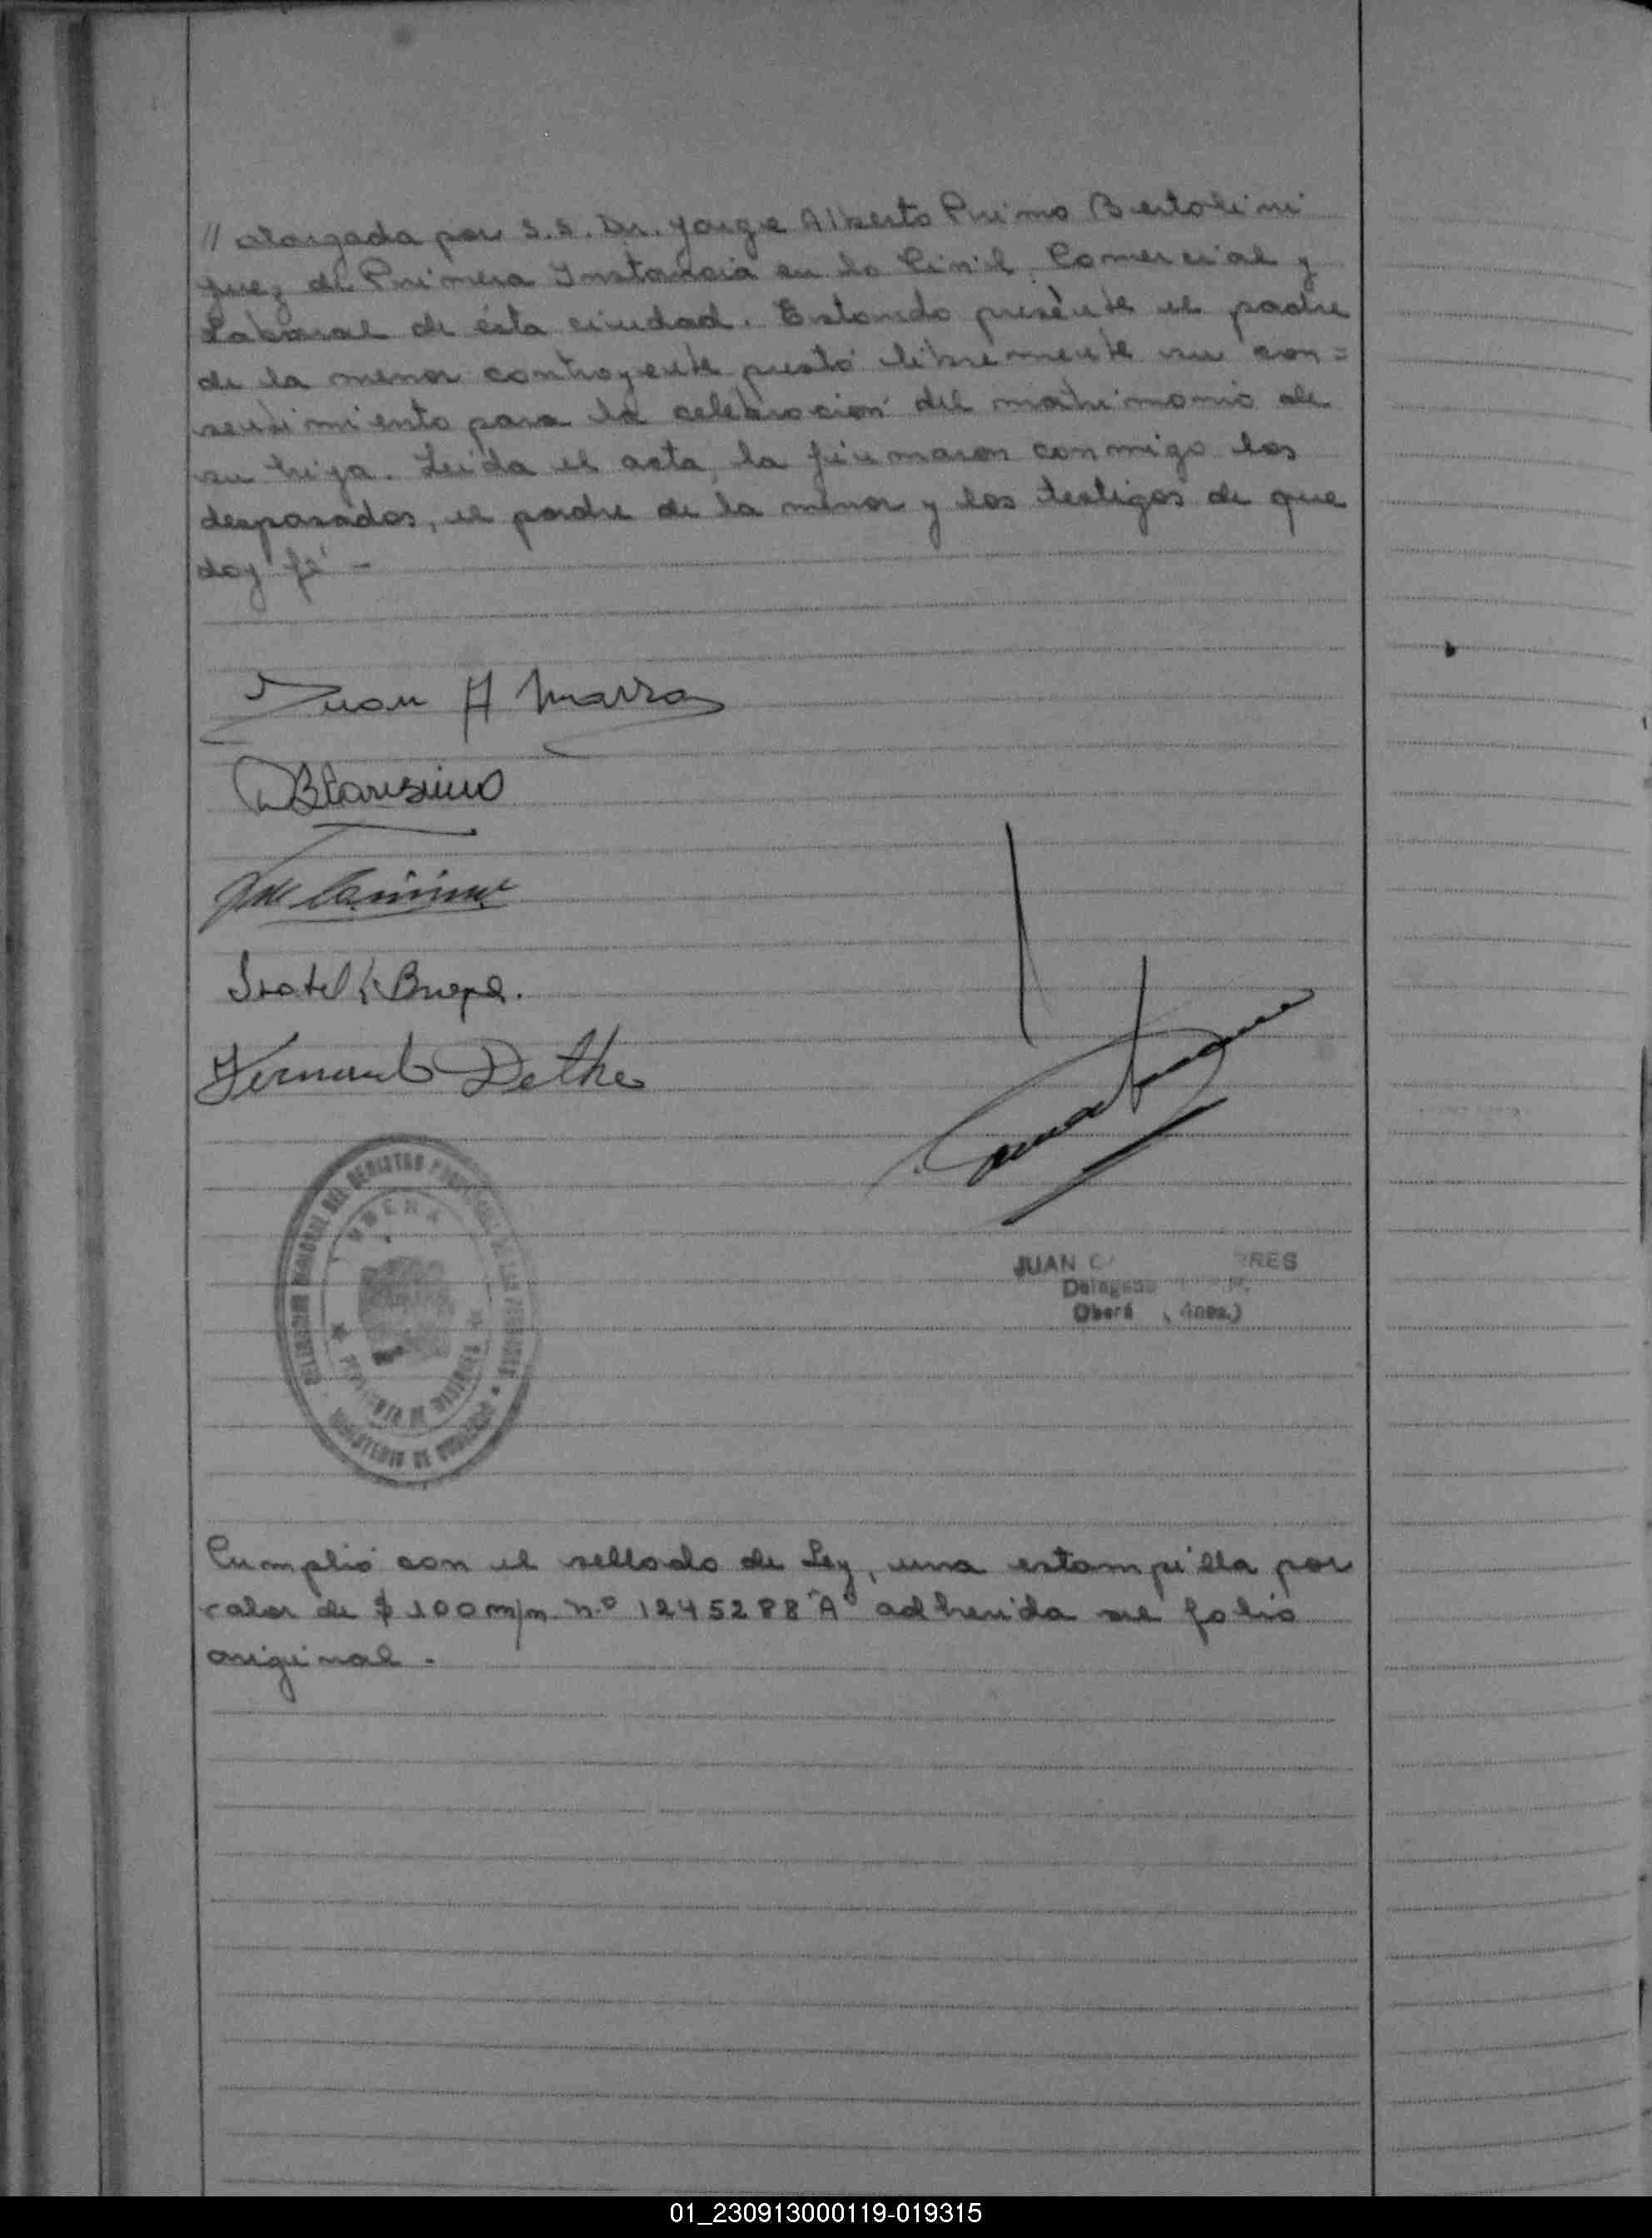 // otorgada por S.S. Dr. Jorge Alberto Primo Bertolini
Juez de Primera Instancia en lo Civil, Comercial y
Laboral de ésta ciudad. Estando presente el padre
de la menor contrayente prestó libremente su con=
sentimiento para la celebración del matrimonio de
su hija. Leída el acta, la firmaron conmigo los
desposados, el padre de la menor y los testigos de que
doy fé -
Juan A
Isabel
JUAN RES
Delegado
Oberá
MINISTERIO DE GOBIERNO
PROVINCIA DE MISIONES
Cumplió con el sellado de Ley, una estampilla por
valor de $ 100 m/n. N.º 1245288 "A" adherida al folio
original.
01_230913000119-019315